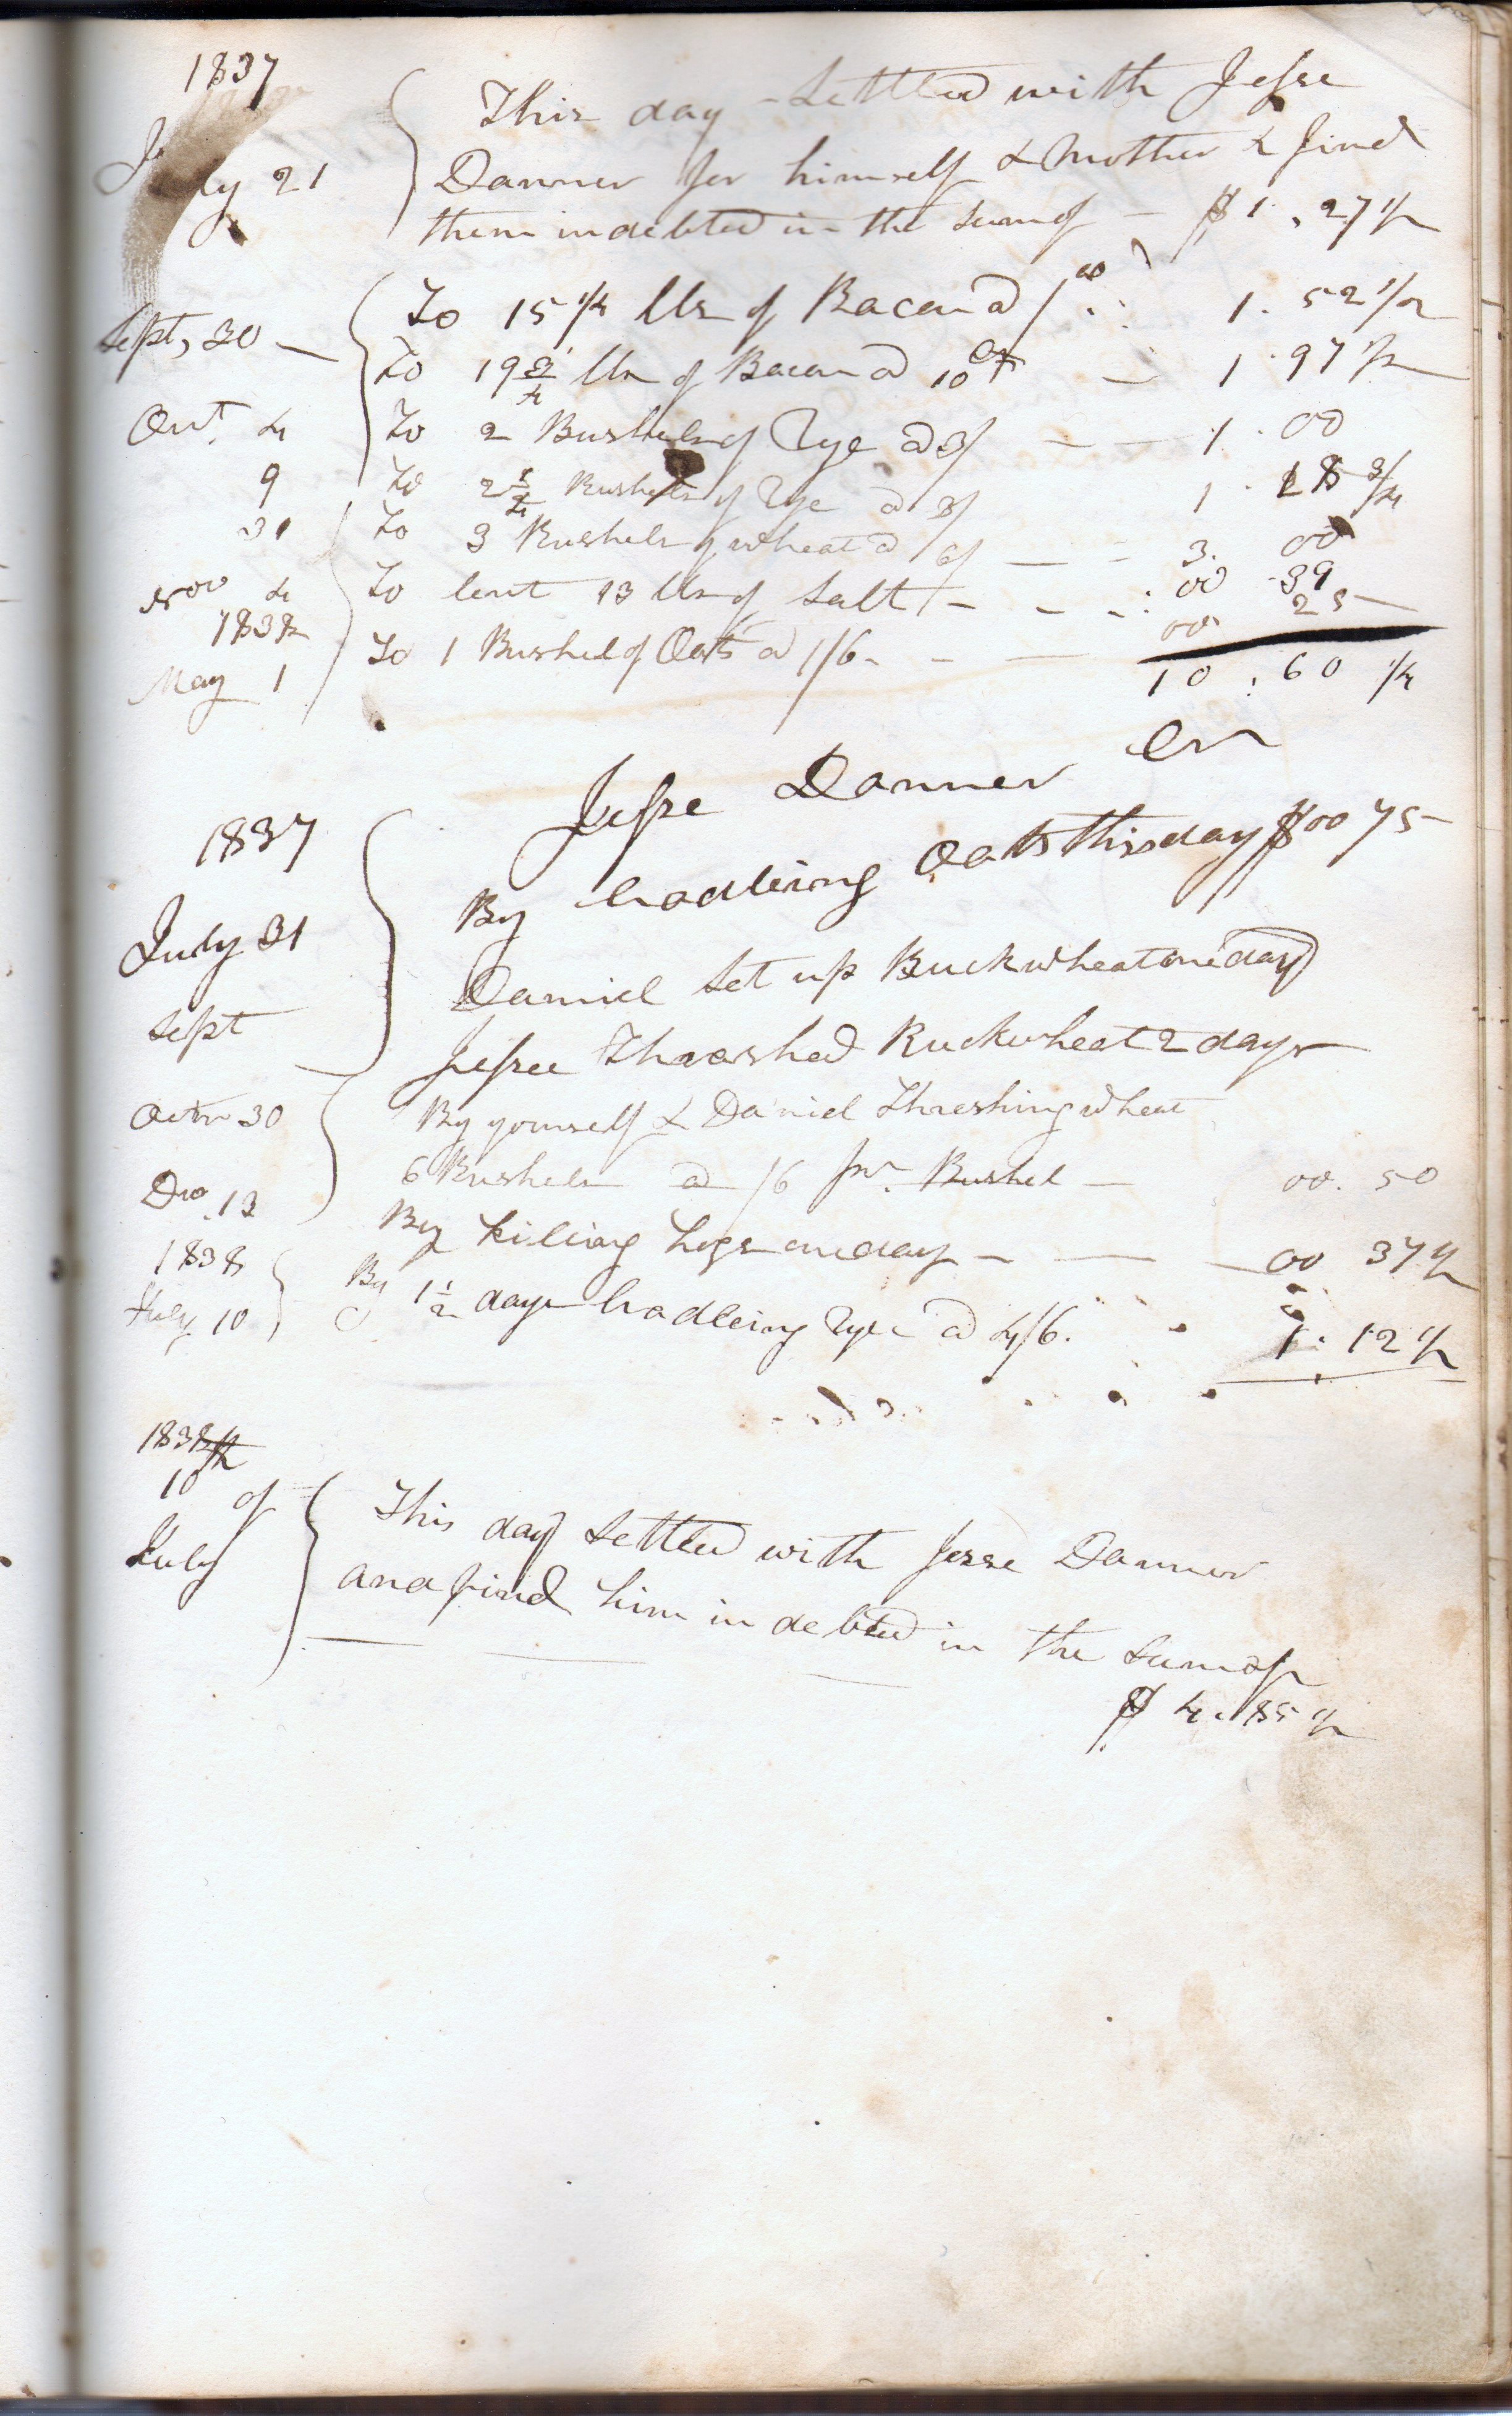 1837
July 21 This day Settled with Jesse
Danner for himself & Mother & find
them indebted in the sum of — $1.27 1/2
Sept, 30 — To 15 1/4 lbs of Bacon @ /00 1.52 1/2
To 19 3/4 lbs of Bacon @ 10 Ct — 1.97 1/2
Oct. 4 To 2 Bushels of Rye @ 3/ — — 1.00
9 To 2 1/4 Bushels of Rye @ 3/ 1.18 3/4
31 To 3 Bushels of wheat @ 6/ — — 3.00
Nov 4 To lent 13 lbs of Salt — — — 00 39
1838
May 1 To 1 Bushel of Oats @ 1/6 — — 00 25
10.60 1/4
Jesse Danner Cr
1837
July 31 By Cradleing Oats this day $00 75
Sept Daniel Set up Buckwheat one day
Jesse Thrashed Buckwheat 2 days
30 By yourself & Daniel Threshing wheat
6 Bushels @ /6 pr. Bushel — 00.50
Dec. 13 By killing hogs one day — — 00 37 1/2
1838
July 10 By 1 1/2 days Cradleing Rye @ 4/6. 1.12 1/2
1838
10th of
July This day Settled with Jesse Danner
and find him indebted in the Sum of
$4.85 1/2